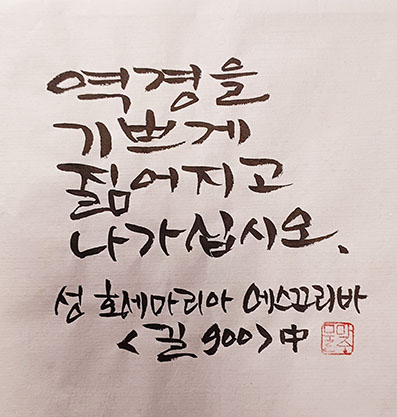 역경을
기쁘게
짊어지고
나가십시오.
성 호세마리아 에스끄리바
<길 900> 中